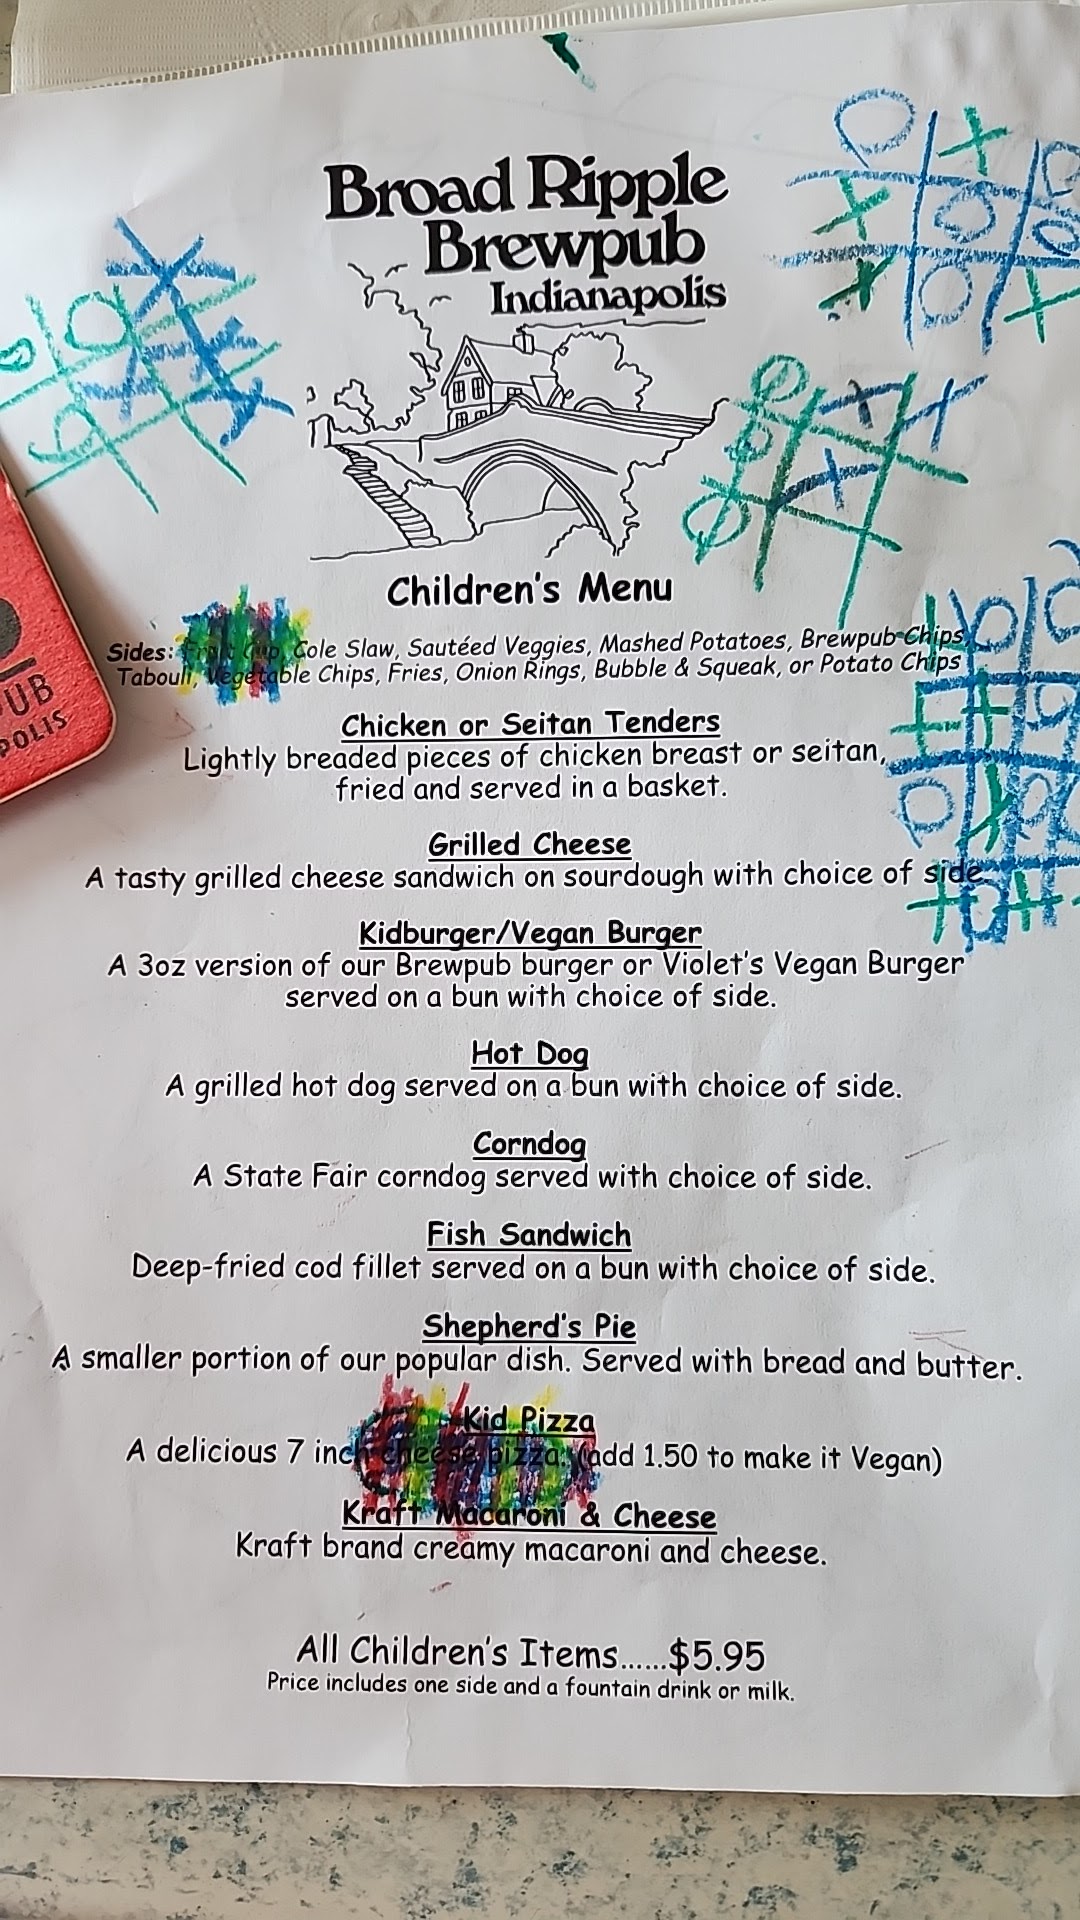 Broad Ripple
Brewpub
Indianapolis
UB
POLIS
Children's Menu
Sides: Fruit Cup, Cole Slaw, Sautéed Veggies, Mashed Potatoes, Brewpub Chips,
Tabouli, Vegetable Chips, Fries, Onion Rings, Bubble & Squeak, or Potato Chips
Chicken or Seitan Tenders
Lightly breaded pieces of chicken breast or seitan,
fried and served in a basket.
Grilled Cheese
A tasty grilled cheese sandwich on sourdough with choice of side.
Kidburger/Vegan Burger
A 3oz version of our Brewpub burger or Violet's Vegan Burger
served on a bun with choice of side.
Hot Dog
A grilled hot dog served on a bun with choice of side.
Corndog
A State Fair corndog served with choice of side.
Fish Sandwich
Deep-fried cod fillet served on a bun with choice of side.
Shepherd's Pie
A smaller portion of our popular dish. Served with bread and butter.
Kid Pizza
A delicious 7 inch cheese pizza. (add 1.50 to make it Vegan)
Kraft Macaroni & Cheese
Kraft brand creamy macaroni and cheese.
All Children's Items......$5.95
Price includes one side and a fountain drink or milk.